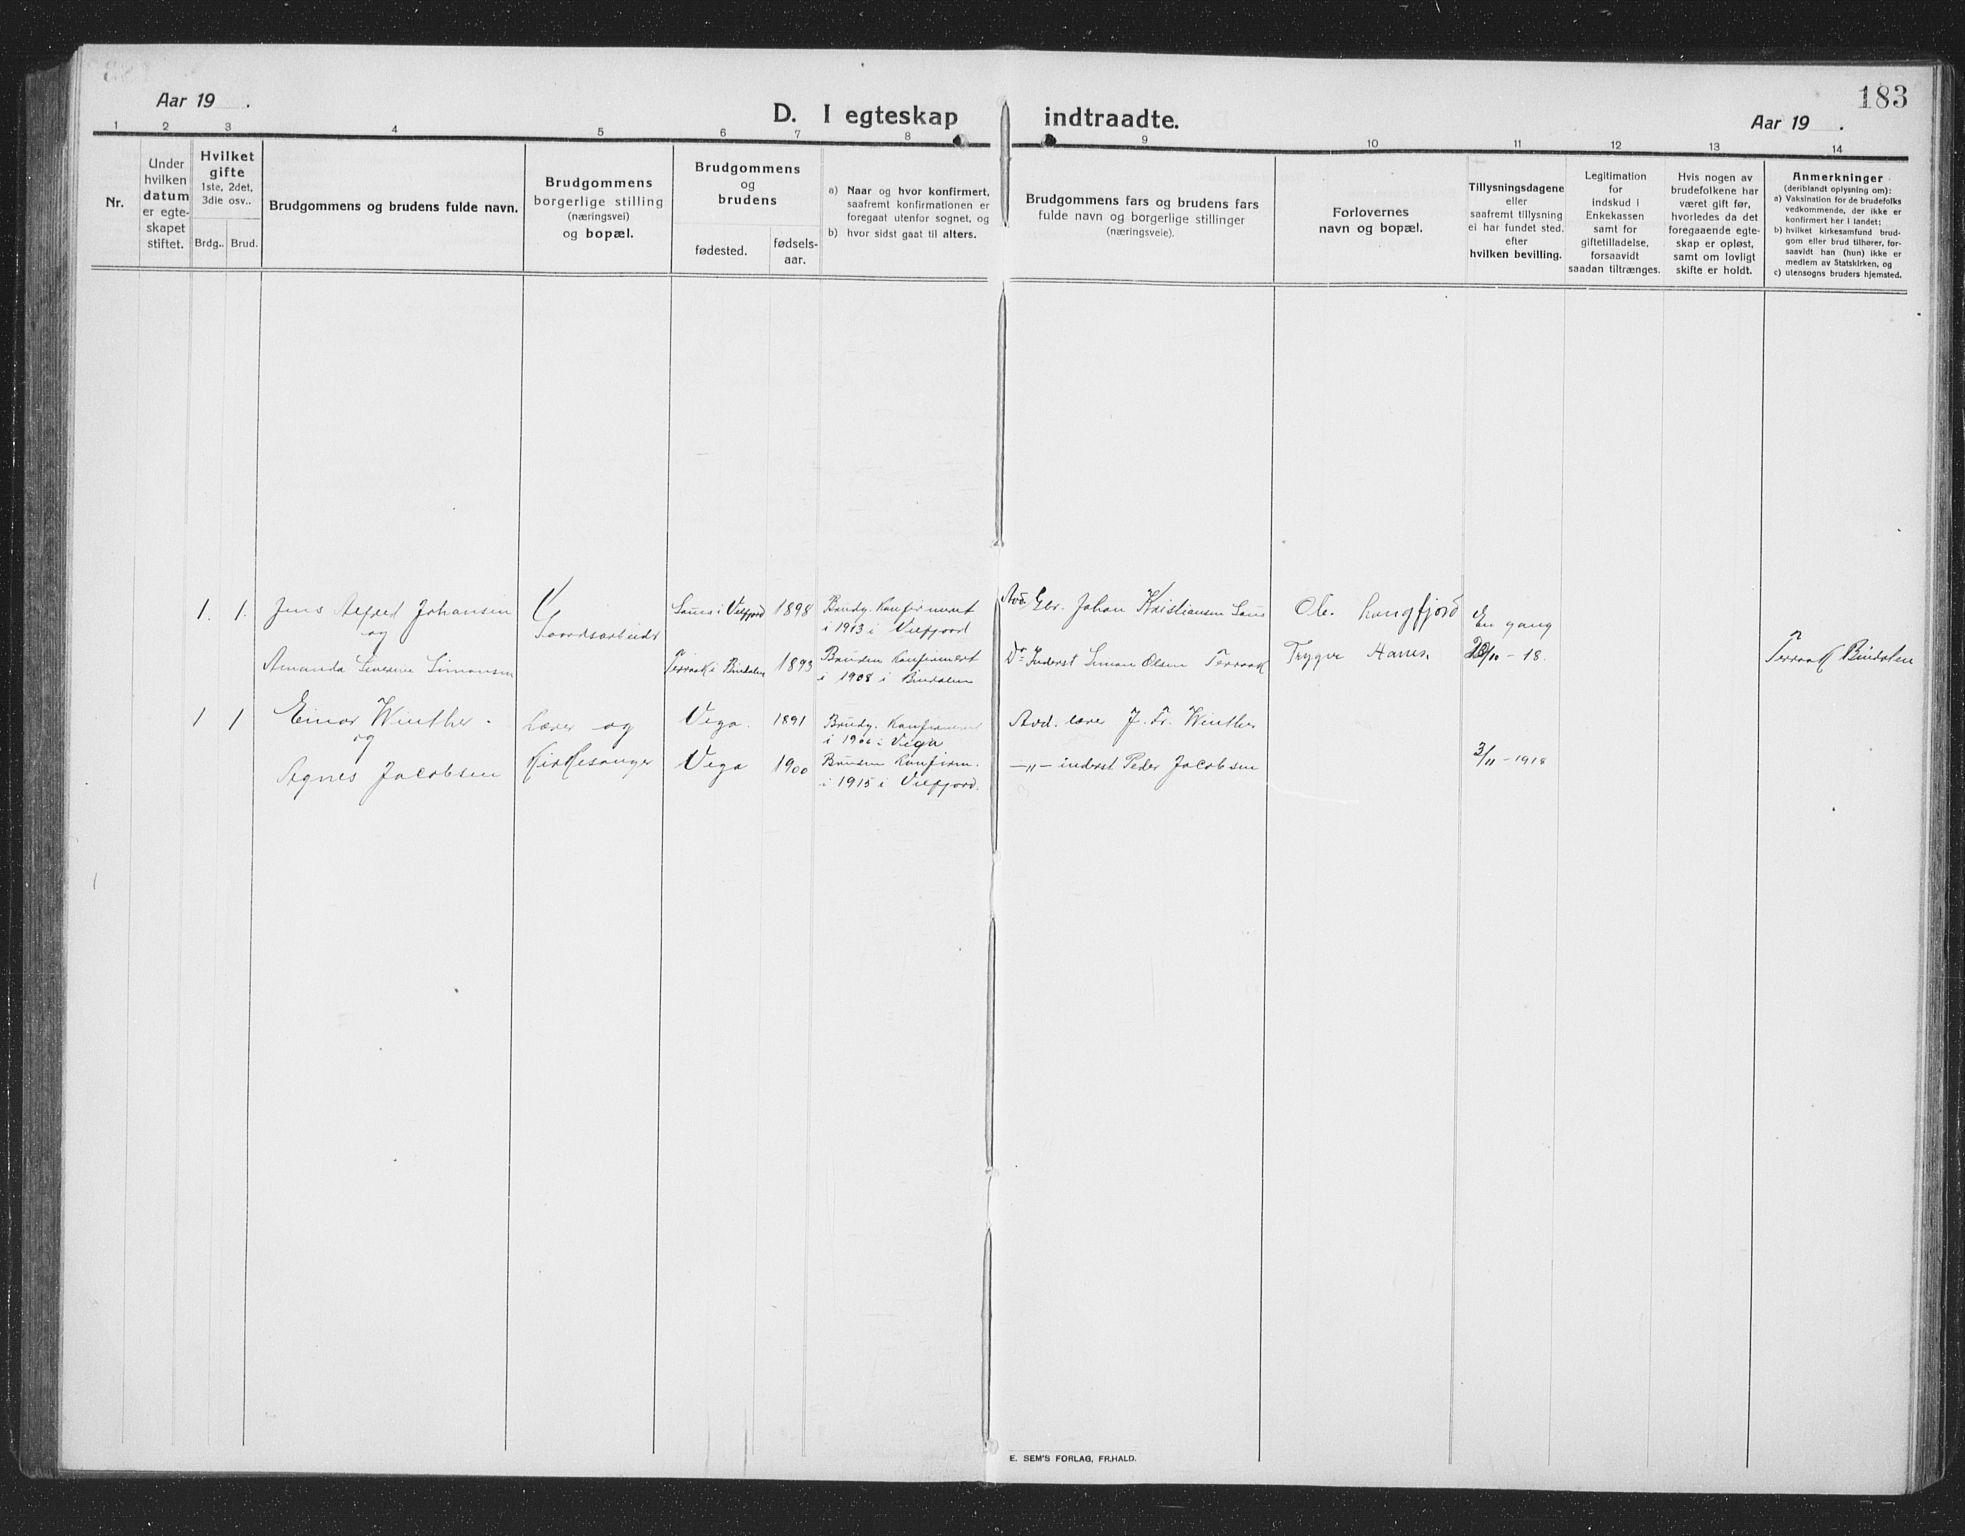 183
Aar 19 .
D. I egteskap indtraadte.
Aar 19 .
1 2 3 4 5 6 7 8 9 10 11 12 13 14
Nr.
Under
hvilken
datum
er egte-
skapet
stiftet.
Hvilket
gifte
1ste, 2det,
3dle osv..
Brdg.. Brud.
Brudgommens og brudens fulde navn.
Brudgommens
borgerlige stilling
(næringsvei)
og bopæl.
Brudgommens
og
brudens
fødested.
fødsels-
aar.
a) Naar og hvor konfirmert,
saafremt konfirmationen er
foregaat utenfor sognet, og
b) hvor sidst gaat til alters.
Brudgommens fars og brudens fars
fulde navn og borgerlige stillinger
(næringsveie).
Forlovernes
navn og bopæl.
Tillysningsdagene
eller
saafremt tillysning
ei har fundet sted,
efter
hvilken bevilling.
Legitimation
for
indskud i
Enkekassen
samt for
giftetilladelse,
forsaavidt
saadan tiltrænges.
Hvis nogen av
brudefolkene har
været gift før,
hvorledes da det
foregaaende egte-
skap er opløst,
samt om lovligt
skifte er holdt.
Anmerkninger
(deriblandt oplysning om):
a) Vaksination for de brudefolks
vedkommende, der ikke er
konfirmert her i landet;
b) hvilket kirkesamfund brud-
gom eller brud tilhører, for-
saavidt han (hun) ikke er
medlem av Statskirken, og
c) utensogns bruders hjemsted.
1. 1. Jens Alfred Johansen
og
Amanda Severine Simonsen
Gaardsarbeider
Saus i Velfjord 1898
Terraak i Bindalen 1893
Brudg. Konfirmert
i 1913 i Velfjord
Bruden Konfirmert
i 1908 i Bindalen
Avd. Gbr. Johan Kristiansen Saus
Do Inderst Simon Olsen Terraak
Ole Langfjord
Trygve
En gang
/10 - 18.
Terraak Bindalen
1 1 Einar Winther
og
Agnes Jacobsen
Lærer og
Kirkesanger
Vega. 1891
Vega 1900
Brudg. Konfirmert
i 1906 i Vega
Bruden Konfirm.
i 1915 i Velfjord.
Avd. lærer J. Fr. Winther
—"— inderst Peder Jacobsen
3/11 - 1918
E. SEM'S FORLAG, FR.HALD.